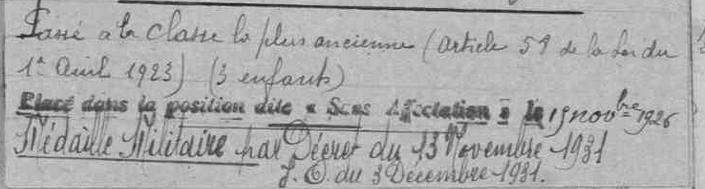 Passé à la classe la plus ancienne (article 59 de la Loi du
1er Avril 1923) (3 enfants)
Placé dans la position dite « Sans Affectation » le 15 novbre 1926
Médaille Militaire par Décret du 13 Novembre 1931
J. O. du 3 Décembre 1931.